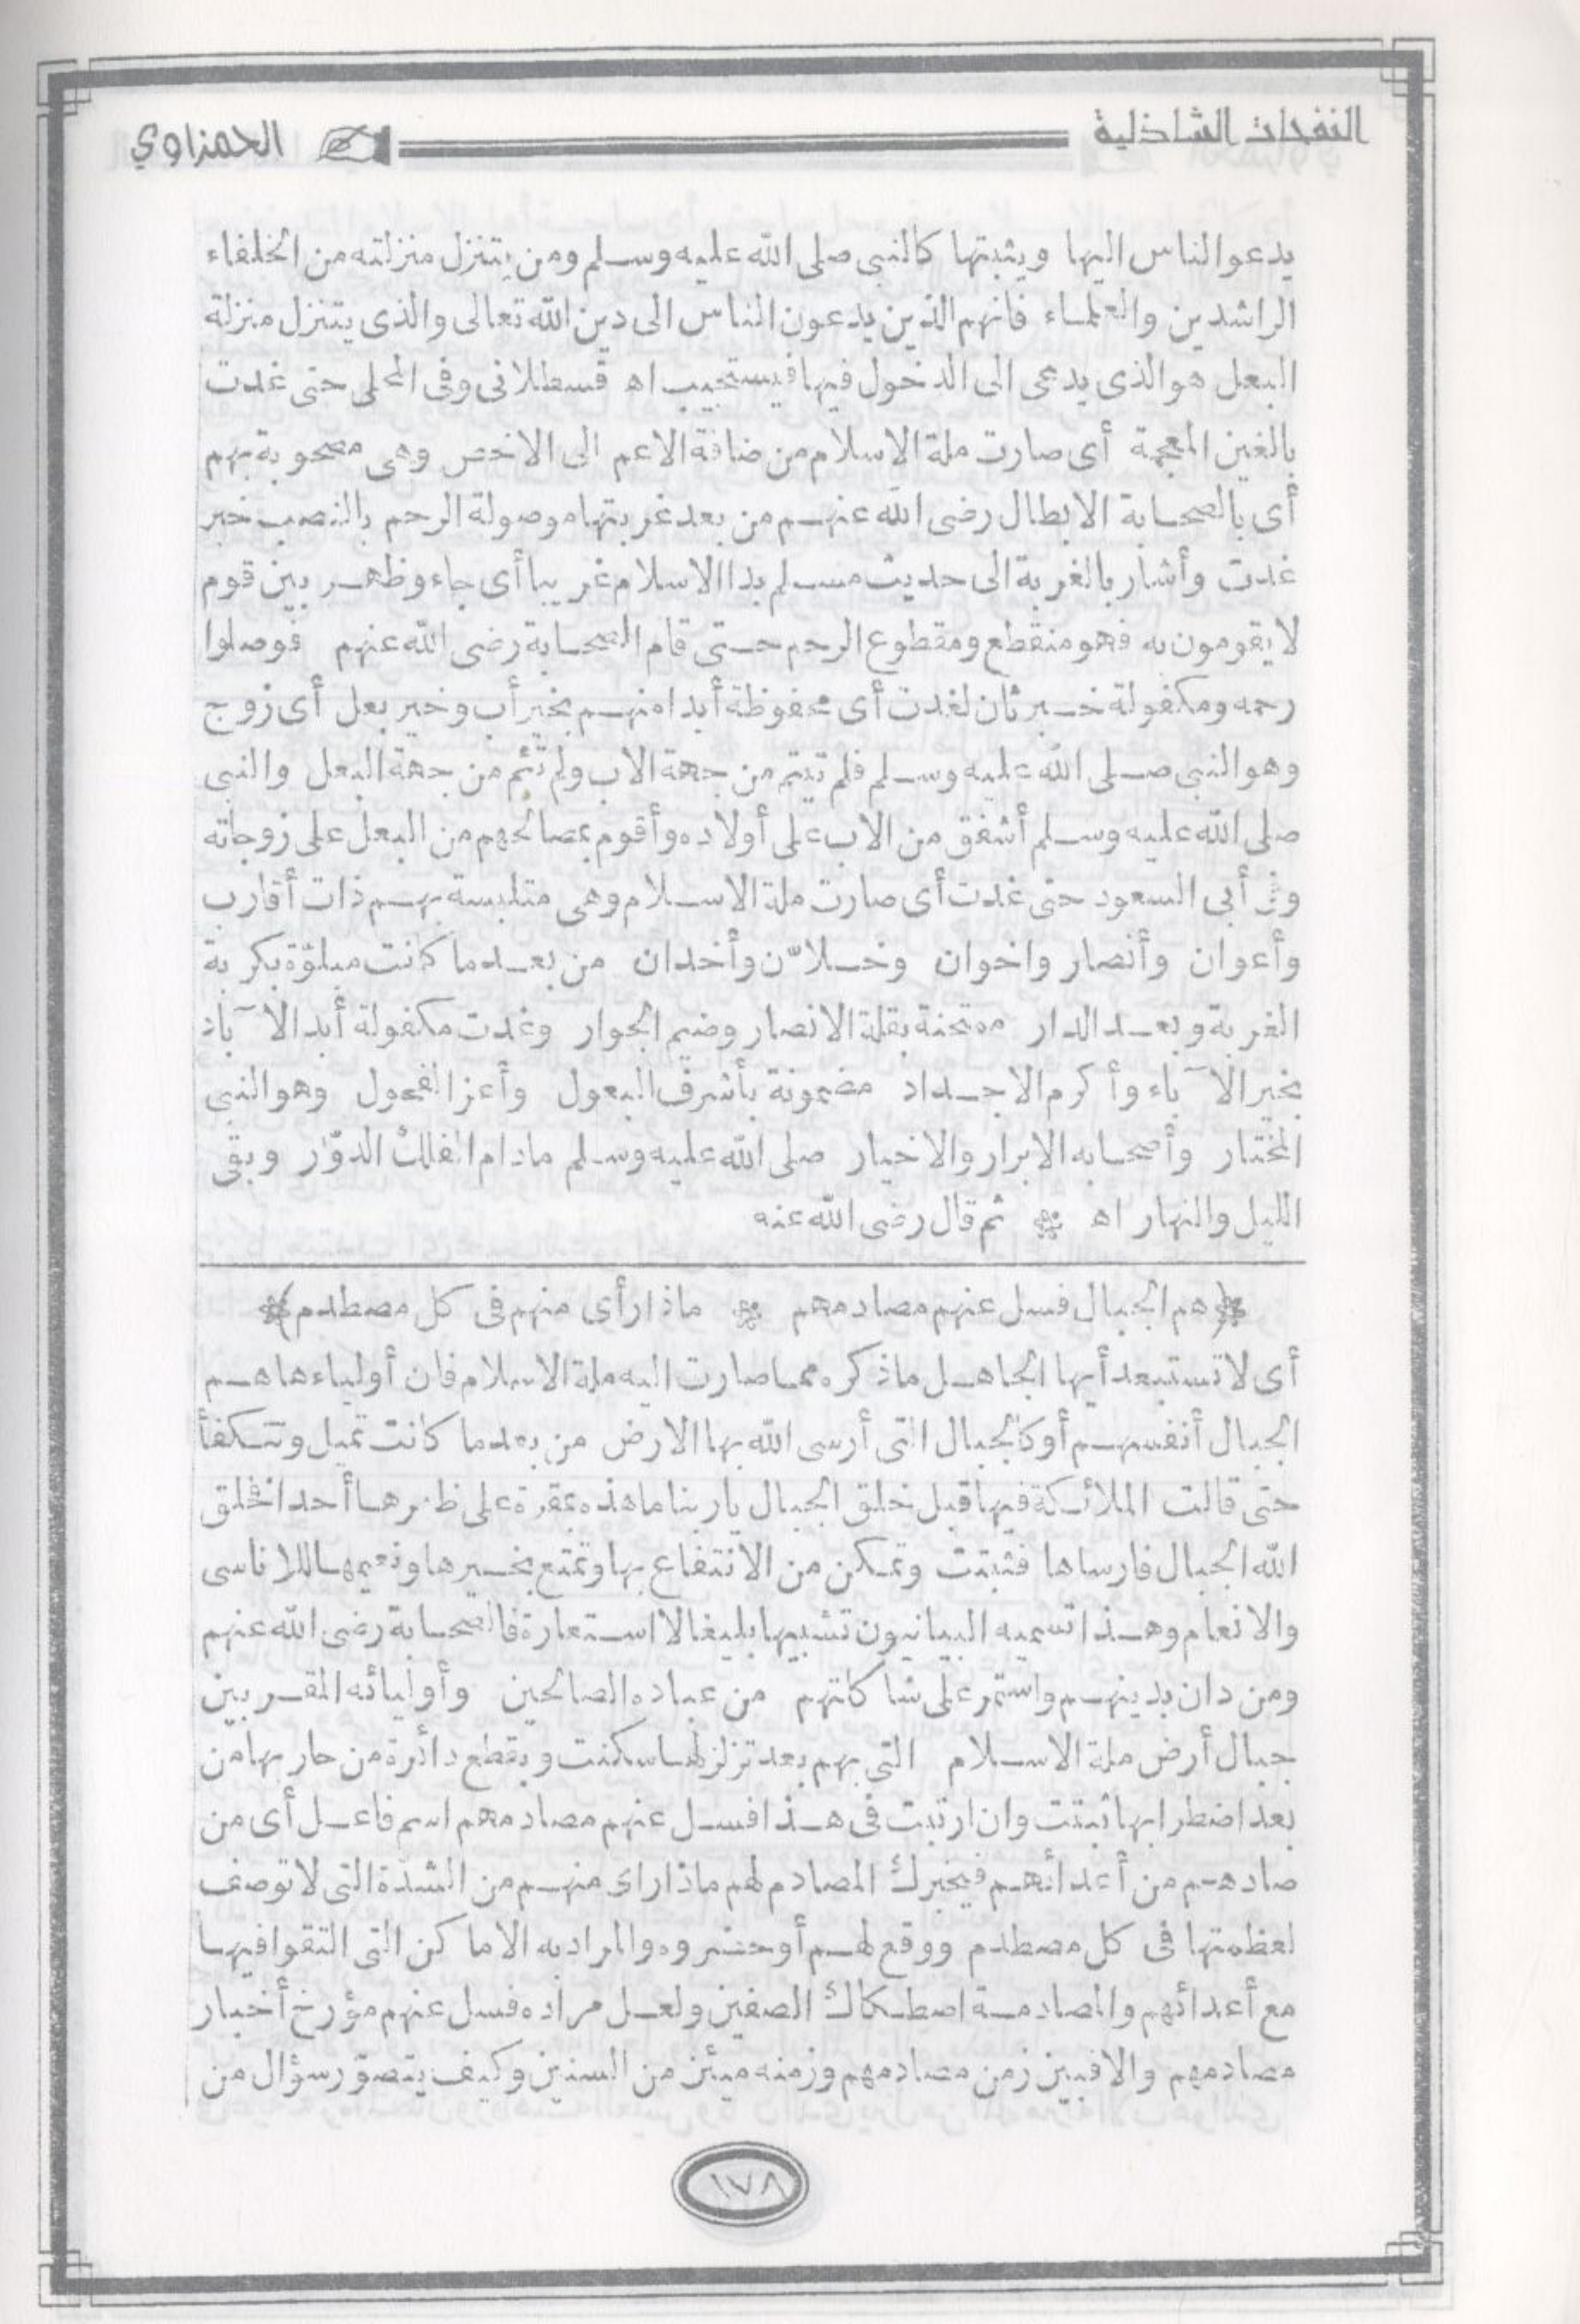 النفحات الشاذلية
الحمزاوي
يدعو الناس اليها ويثبتها كالنبي صلى الله عليه وسلم ومن يتنزل منزلته من الخلفاء
الراشدين والعلماء فانهم الذين يدعون الناس الى دين الله تعالى والذى يتنزل منزلة
البعل هو الذى يدعى الى الدخول فيها فيستجيب اه قسطلانى وفى المحلى حتى غدت
بالغين المعجمة أى صارت ملة الاسلام من ضافة الاعم الى الاخص وهى مصحوبة بهم
أى بالصحابة الابطال رضى الله عنهم من بعد غربتها موصولة الرحم بالنصب خبر
غدت وأشار بالغربة الى حديث مسلم بدا الاسلام غريبا أى جاء وظهر بين قوم
لا يقومون به فهو منقطع ومقطوع الرحم حتى قام الصحابة رضى الله عنهم فوصلوا
رحمه ومكفولة خبر ثان لغدت أى محفوظة أبدا منهم بخير أب وخير بعل أى زوج
وهو النبى صلى الله عليه وسلم فلم تيتم من جهة الاب ولم تئم من جهة البعل والنبى
صلى الله عليه وسلم أشفق من الاب على أولاده وأقوم بمصالحهم من البعل على زوجاته
أبى السعود حتى غدت أى صارت ملة الاسلام وهى متلبسة بهم ذات أقارب
وأعوان وأنصار واخوان وخلان وأخدان من بعد ما كانت مبلوّة بكربة
الغربة وبعد الدار ممتحنة بقلة الانصار وضيم الجوار وغدت مكفولة أبد الآباد
بخير الآباء وأكرم الاجداد مضمونة بأشرف البعول وأعز الفحول وهو النبى
المختار وأصحابه الابرار والاخيار صلى الله عليه وسلم مادام الفلك الدوّار وبقى
الليل والنهار اه ثم قال رضى الله عنه
هم الجبال فسل عنهم مصادمهم ماذا رأى منهم فى كل مصطدم
أى لا تستبعد أيها الجاهل ما ذكره مما صارت اليه ملة الاسلام فان أولياءها هم
الجبال أنفسهم أو كالجبال التى أرسى الله بها الارض من بعد ما كانت تميل وتتكفأ
حتى قالت الملائكة فيها قبل خلق الجبال يا ربنا ما هذه بمقرة على ظهرها أحدا فخلق
الله الجبال فارساها فثبتت وتمكن من الانتفاع بها وتمتع بخيرها ونعيمها للاناسى
والانعام وهذا تسميه البيانيون تشبيها بليغا لا استعارة فالصحابة رضى الله عنهم
ومن دان بدينهم واستمر على شاكلتهم من عباده الصالحين وأوليائه المقربين
جبال أرض ملة الاسلام التى بهم بعد تزلزلها سكنت وبقطع دائرة من حاربها من
بعد اضطرابها ثبتت وان ارتبت فى هذا فسل عنهم مصادمهم اسم فاعل أى من
صادمهم من أعدائهم فيخبرك المصادم لهم ماذا رأى منهم من الشدّة التى لا توصف
لعظمتها فى كل مصطدم ووقع لهم أو حضروه والمراد به الاماكن التى التقوا فيها
مع أعدائهم والمصادمة اصطكاك الصفين ولعل مراده فسل عنهم مؤرخ أخبار
مصادمهم والا فبين زمن مصادمهم وزمنه ميئن من السنين وكيف يتصوّر سؤال من
١٧٨